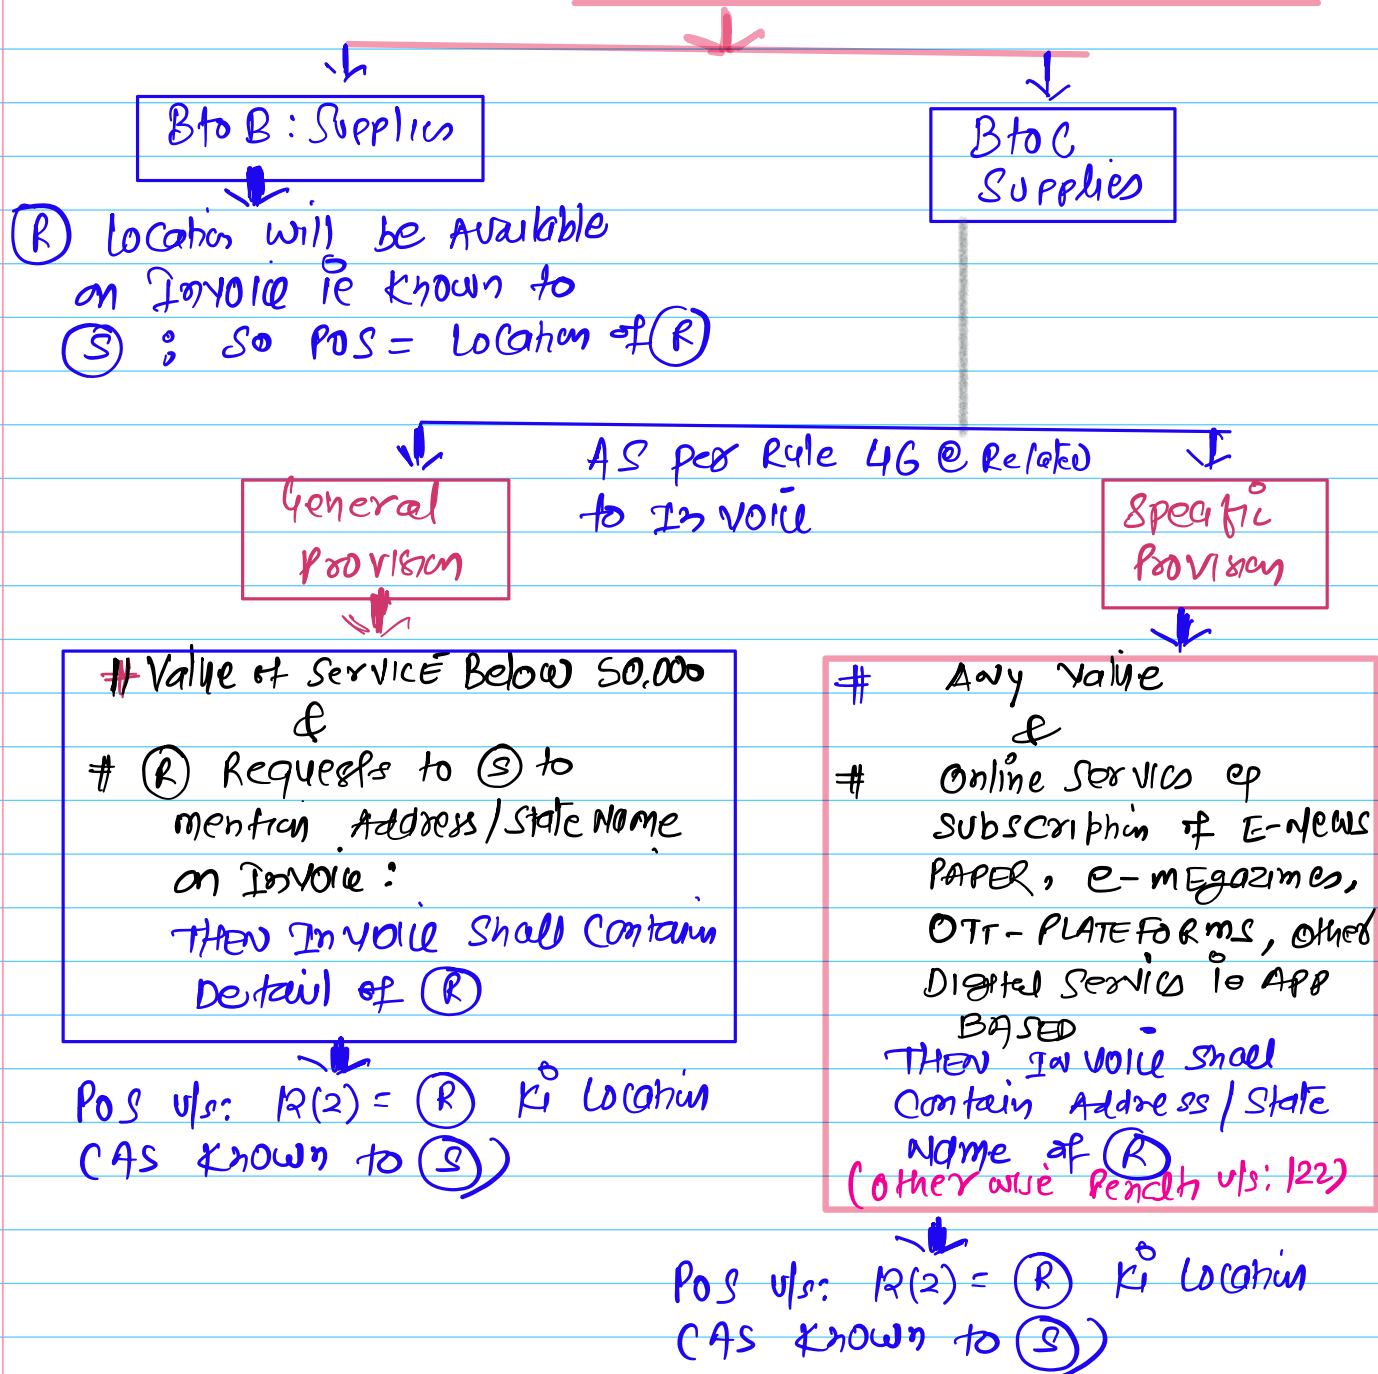 B to B : Supplies
B to C
Supplies
(R) Location will be Available
on Invoice ie known to
(S) : So POS = Location of (R)
AS per Rule 46 @ Related
to Invoice
General
Provision
Specific
Provision
# Value of SERVICE Below 50,000
&
# (R) Requests to (S) to
mention Address/State Name
on Invoice :
THEN Invoice Shall Contain
Detail of (R)
POS u/s: 12(2) = (R) Ki Location
(AS known to (S))
# Any Value
&
# Online Services eg
Subscription of E-News
PAPER, e-megazines,
OTT-PLATEFORMS, other
Digital Services ie APP
BASED
THEN Invoice shall
Contain Address/State
Name of (R)
(otherwise Penalty u/s: 122)
POS u/s: 12(2) = (R) Ki Location
(AS known to (S))